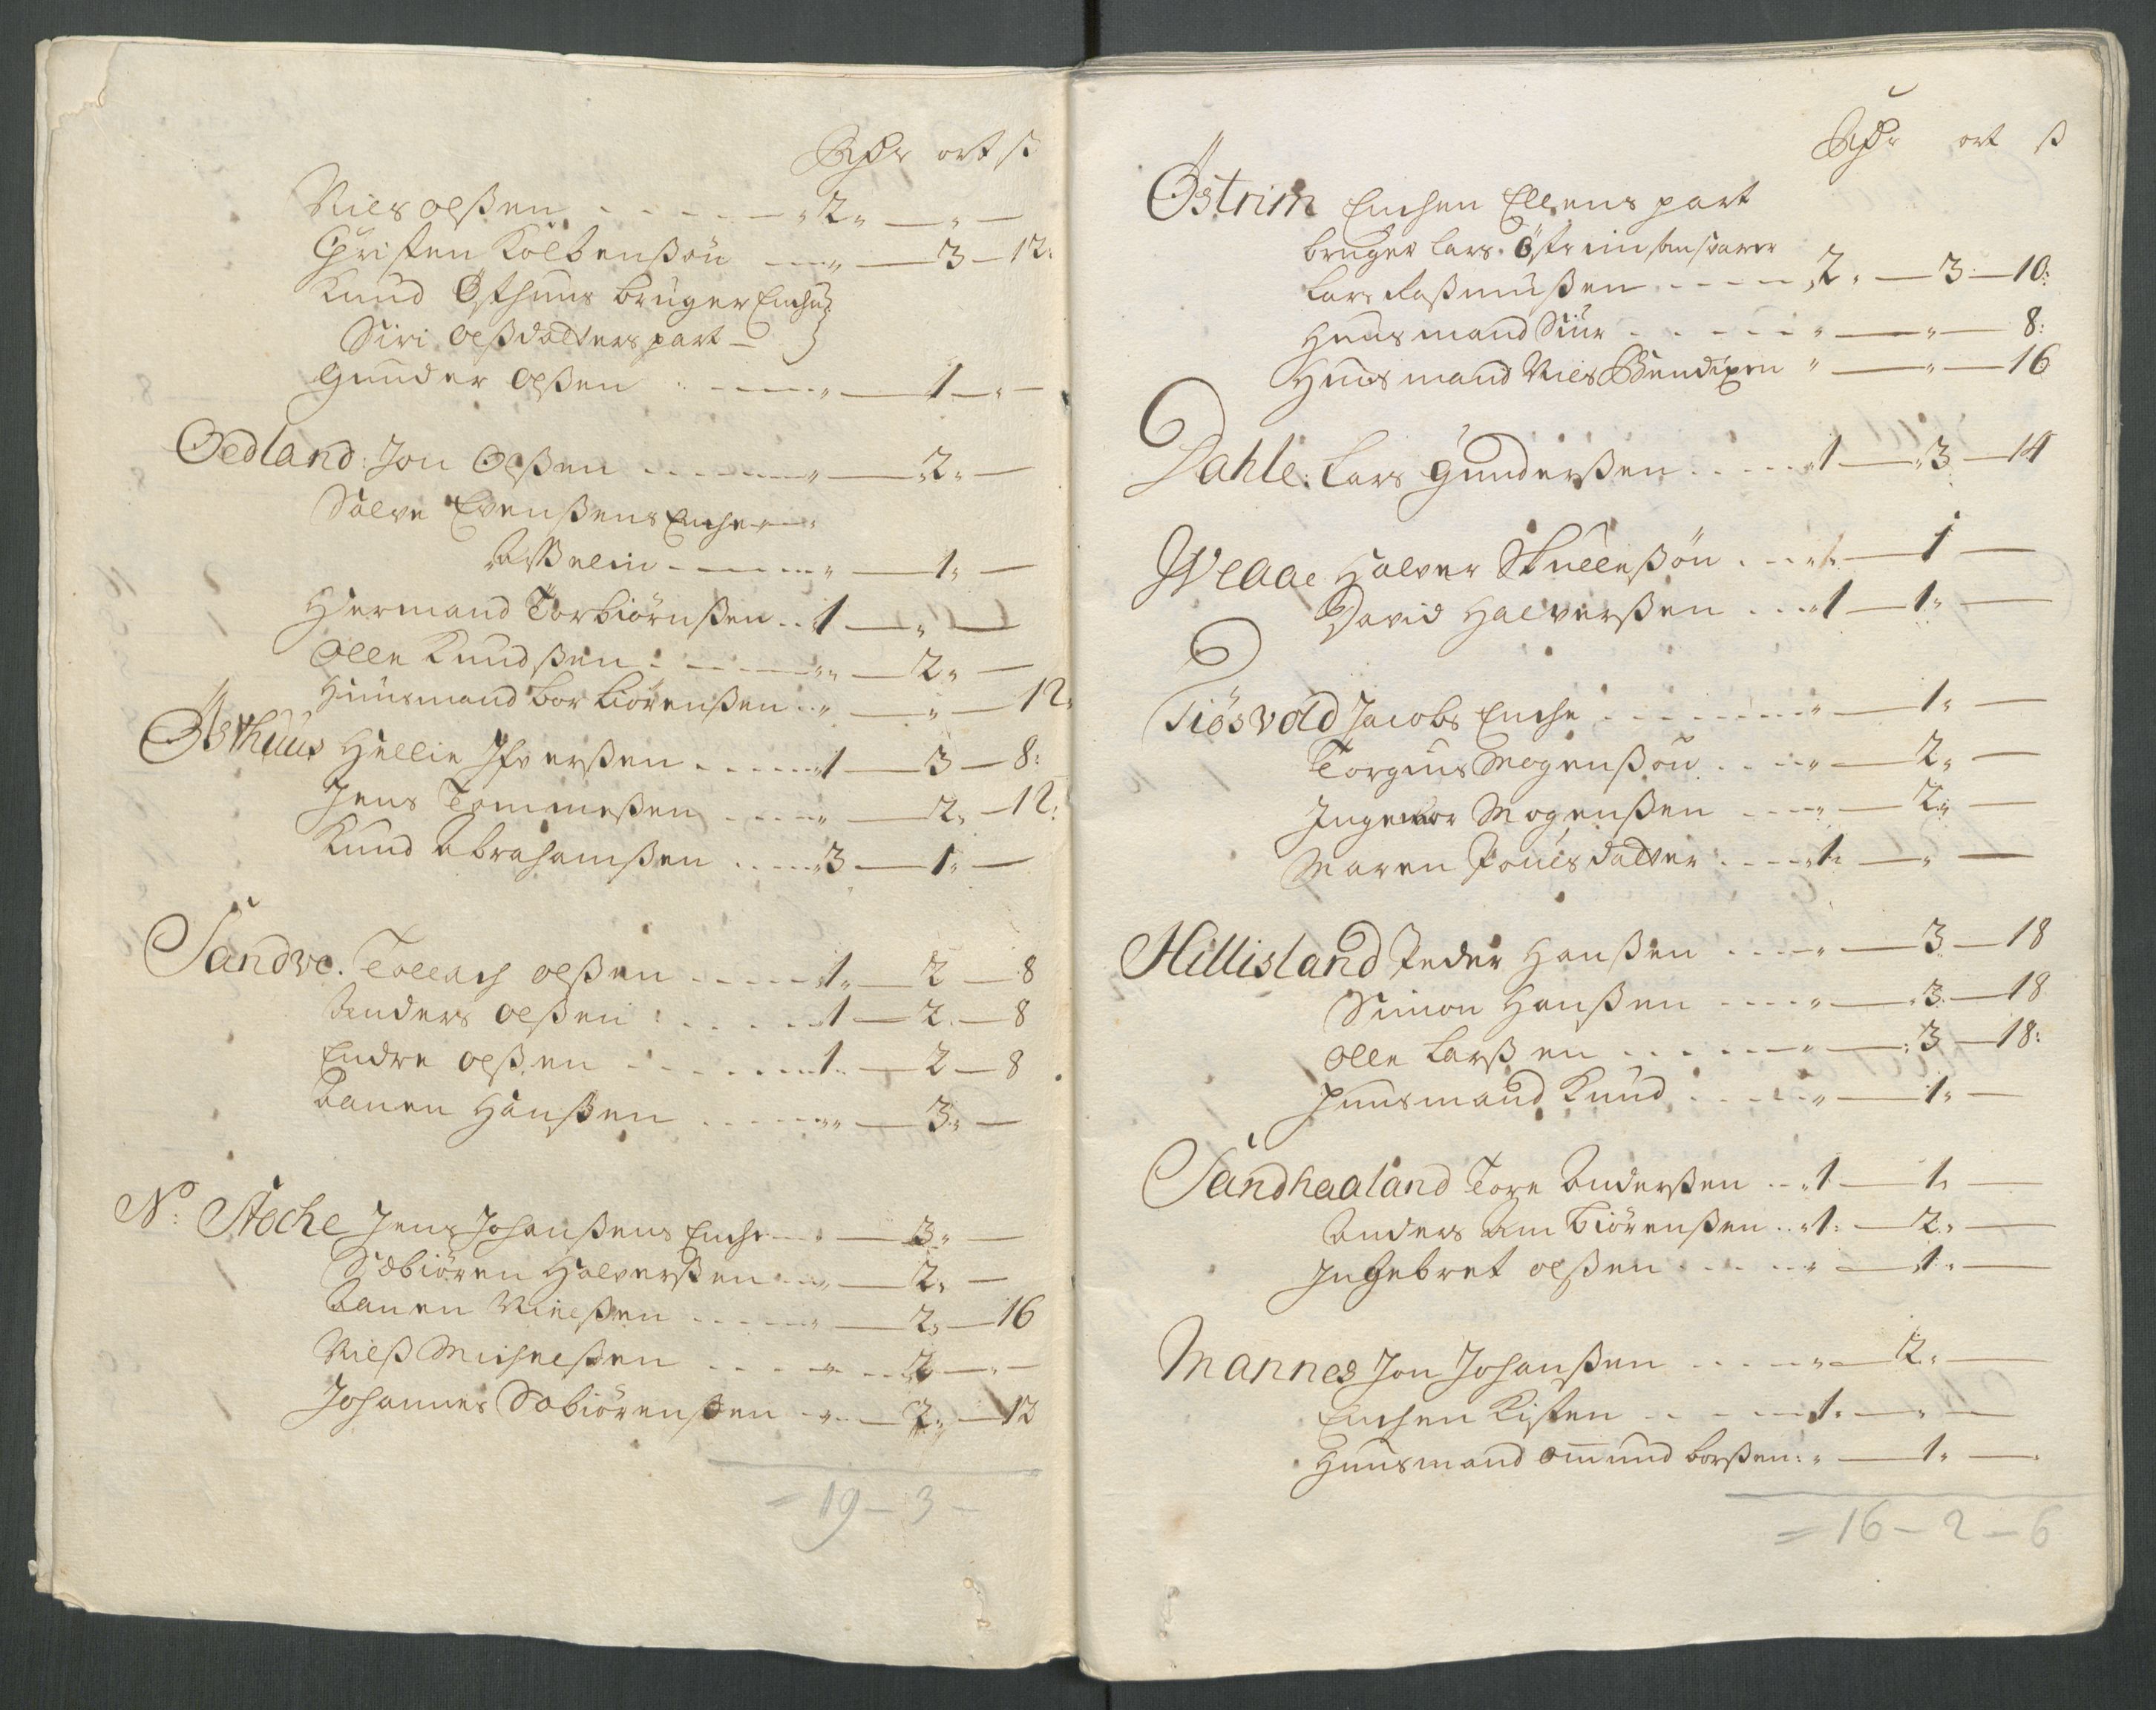 Rdr ort ß
Niels olßen - - - - - " 2 " — " —
Christen Kolbenßön - - - " — 3 — 12:
Knud Østhuus bruger Enche
Siri olßdatters part —
Gunder olßen - - - - " — 1 — " —
Oedland: Jon Olßen - - - - " — 2 " —
Salve Evenßens Enche - -
- - - - " — 1 " —
Hermand Torbiörnßen - - 1 — " —
Olle Knudßen - - - - " — 2 " —
Huusmand Torbiörenßen - - " — " — 12 "
Østhuus Hellie Ifverßen - - - - 1 — 3 — 8:
Jens Tommeßen - - - - " — 2 " — 12:
Knud Abrahamßen - - - - 3 — 1 " —
Sandve. Tollach olßen - - - - 1 " — 2 — 8
Anders olßen - - - - 1 — 2 — 8
Endre olßen - - - - 1 — 2 — 8
Aanen Hanßen - - - - " — 3 " —
No: Stoche Jens Johanßens Enche - - " — 3 " —
Söbiören Halverßen - - " — 2 " —
Aanen Nielßen - - - - " — 2 " — 16
Nielß Michelßen - - - - " — 2 — " —
Johannes Söbiörenßen - - " — 2 " — 12
= 19 – 3 –
Rdr ort ß
Østrim Enchen Ellens part
bruger Lars Østrim
Lars Raßmußen - - - - " 2 " — 3 — 10:
Huusmand Siur - - - - " — " — 8:
Huusmand Niels Bendixen " — " — 16
Dahle: Lars Gunderßen - - - - 1 — 3 — 14
Weaae Halver Skuleßön - - - 1 — 1 —
David Halverßen - - - 1 — 1 " —
Tiösvold Jacobs Enche - - - - " — 1 " —
Torgiuus Mogenßön - - - " — 2 " —
Ingemor Mogenßen - - - " — 2 " —
Maren Povelsdatter - - - - 1 " — " —
Hillisland Peder Hanßen - - - - " — 3 — 18
Simon Hanßen - - - - " — 3 — 18
Olle Larßen - - - - " — 3 — 18:
Huusmand Knud - - - - " — 1 " —
Sandhaaland Tore Anderßen - - 1 — 1 " —
Anders Ambiörenßen - - 1 — 2 " —
Ingebret olßen - - - - " — 1 " —
Mannes Jon Johanßen - - - - " — 2 " —
Enchen Kisten - - - - 1 " — " —
Huusmand Omund borßen: " — 1 " —
= 16 – 2 – 6